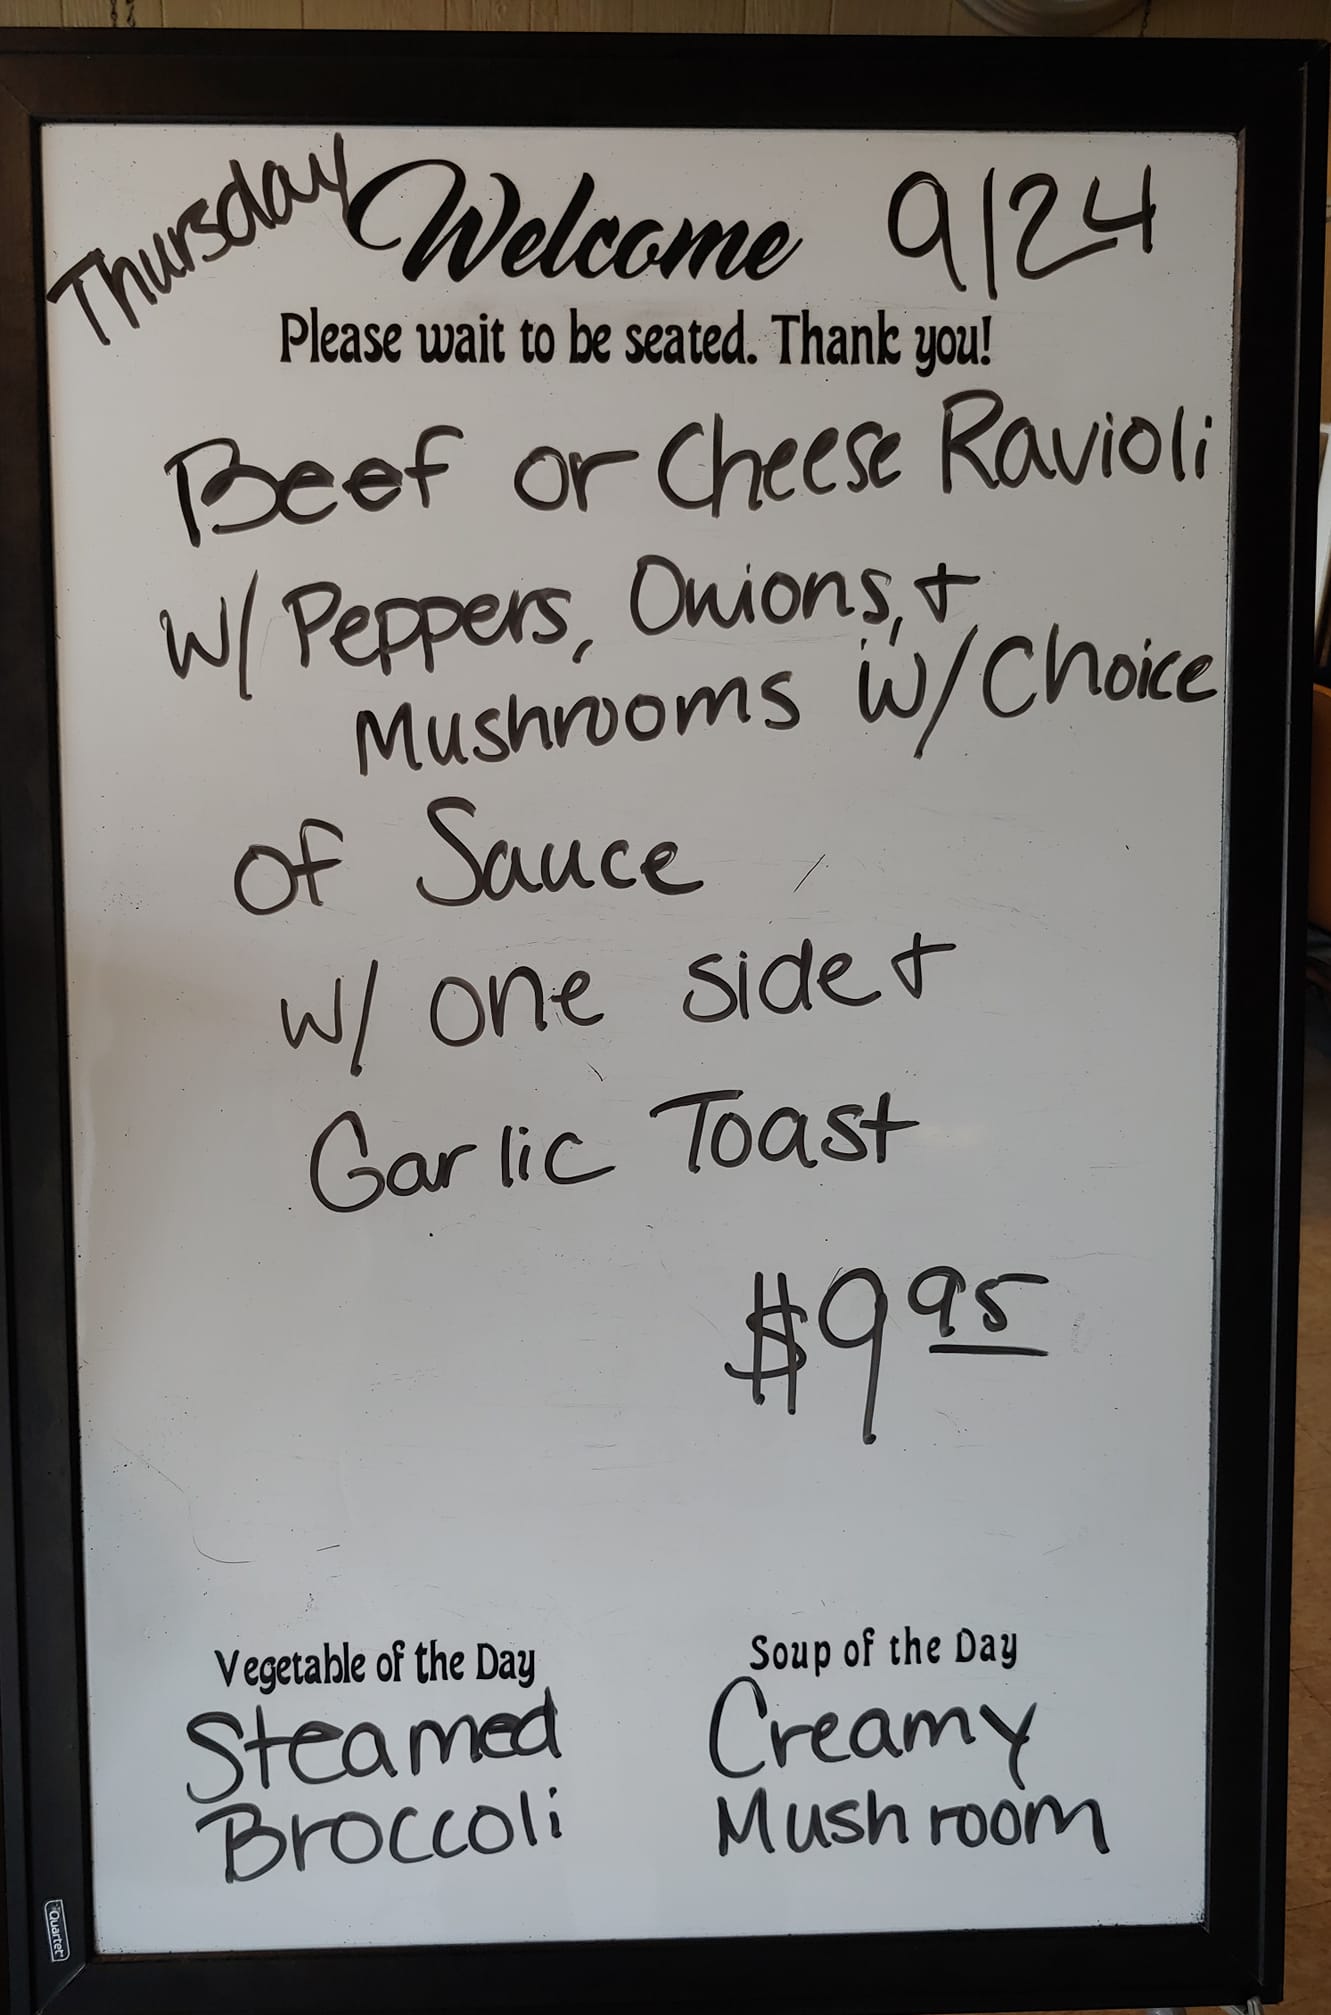 Thursday Welcome 9/24
Please wait to be seated. Thank you!
Beef or Cheese Ravioli
W/ Peppers, Onions, +
Mushrooms W/ Choice
of Sauce
w/ one side +
Garlic Toast
$9 95
Vegetable of the Day
Steamed
Broccoli
Soup of the Day
Creamy
Mushroom
Quartet